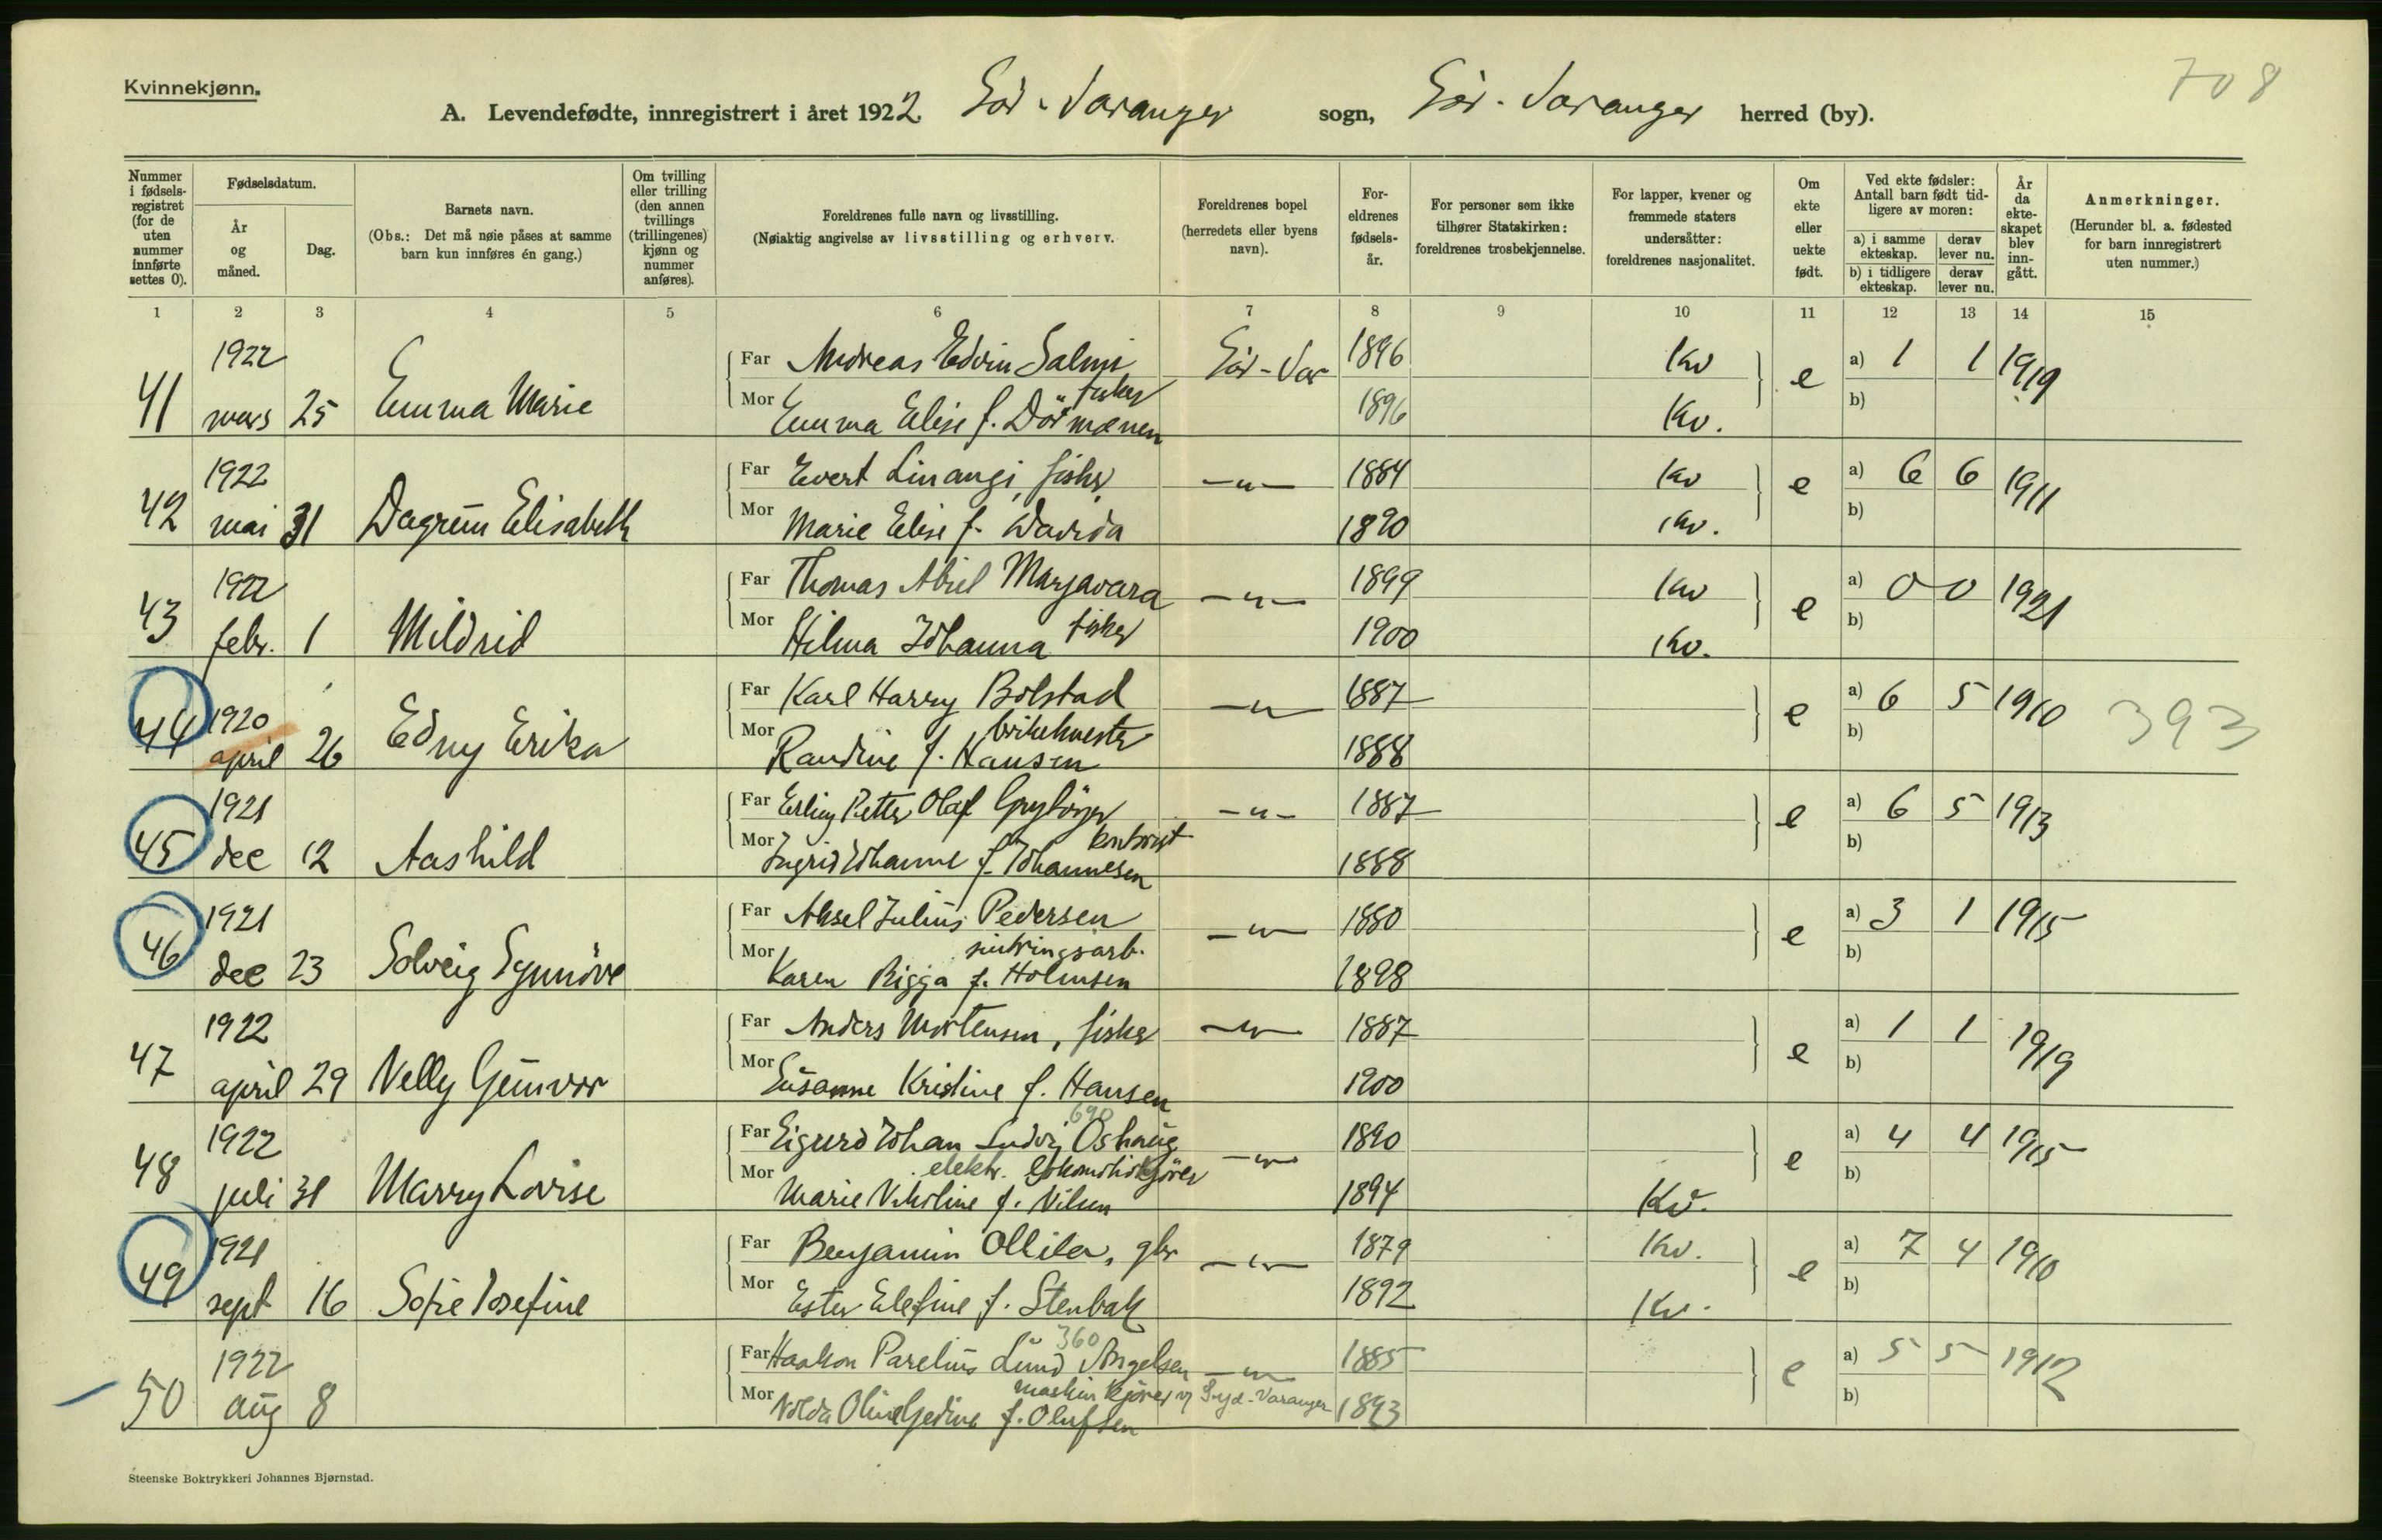 Kvinnekjønn.
708
A. Levendefødte, innregistrert i året 1922. Sør-Varanger sogn, Sør-Varanger herred (by).
Nummer i fødsels-registret (for de uten nummer innførte settes 0).
Fødselsdatum.
År og måned.
Dag.
Barnets navn.
(Obs.: Det må nøie påses at samme barn kun innføres én gang.)
Om tvilling eller trilling (den annen tvillings (trillingenes) kjønn og nummer anføres).
Foreldrenes fulle navn og livsstilling.
(Nøiaktig angivelse av livsstilling og erhverv.
Foreldrenes bopel (herredets eller byens navn).
For-eldrenes fødsels-år.
For personer som ikke tilhører Statskirken: foreldrenes trosbekjennelse.
For lapper, kvener og fremmede staters undersåtter: foreldrenes nasjonalitet.
Om ekte eller uekte født.
Ved ekte fødsler: Antall barn født tid-ligere av moren:
a) i samme ekteskap. derav lever nu.
b) i tidligere ekteskap. derav lever nu.
År da ekte-skapet blev inn-gått.
Anmerkninger.
(Herunder bl. a. fødested for barn innregistrert uten nummer.)
1 2 3 4 5 6 7 8 9 10 11 12 13 14 15
41 1922 mars 25 Emma Marie
Far Andreas Edvin Salmi fisker Sør-Var 1896 Kv e a) 1 1 1919
Mor Emma Elise f. Dörmænen 1896 Kv. b)
42 1922 mai 31 Dagrun Elisabeth
Far Evert Linangi, fisker —"— 1884 Kv e a) 6 6 1911
Mor Marie Elise f. 1890 Kv. b)
43 1922 febr. 1 Mildrid
Far Thomas Abiel Marjavara fisker —"— 1899 Kv e a) 0 0 1921
Mor Hilma Johanna 1900 Kv. b)
44 1920 april 26 Edny Erika
Far Karl Harry Bolstad —"— 1887 e a) 6 5 1910 393
Mor Randine f. Hansen 1888 b)
45 1921 dec 12 Aashild
Far Erling Petter Olaf kontorist —"— 1887 e a) 6 5 1913
Mor Ingrid Johanne f. Johannesen 1888 b)
46 1921 dec 23 Solveig Synnöve
Far Aksel Julius Pedersen sintringsarb. —"— 1880 e a) 3 1 1915
Mor Karen Rigja f. Holmsen 1898 b)
47 1922 april 29 Nelly Gunvor
Far Anders Mortensen, fisker —"— 1887 e a) 1 1 1919
Mor Susanne Kristine f. Hansen 1900 b)
690
48 1922 juli 31 Marry Lovise
Far Sigurd Johan Ludvig Oshaug elektr. lokomotivkjörer —"— 1890 e a) 4 4 1915
Mor Marie Nikoline f. Nilsen 1894 Kv. b)
49 1921 sept 16 Sofie Josefine
Far Benjamin Ollila, gbr —"— 1879 Kv. e a) 7 4 1910
Mor Ester Elefine f. Stenbak 1892 Kv. b)
360
50 1922 aug 8
Far Haakon Parelius Lund Angelsen maskinkjörer v/ Syd-Varanger —"— 1885 e a) 5 5 1912
Mor Olufsen 1893 b)
Steenske Boktrykkeri Johannes Bjørnstad.